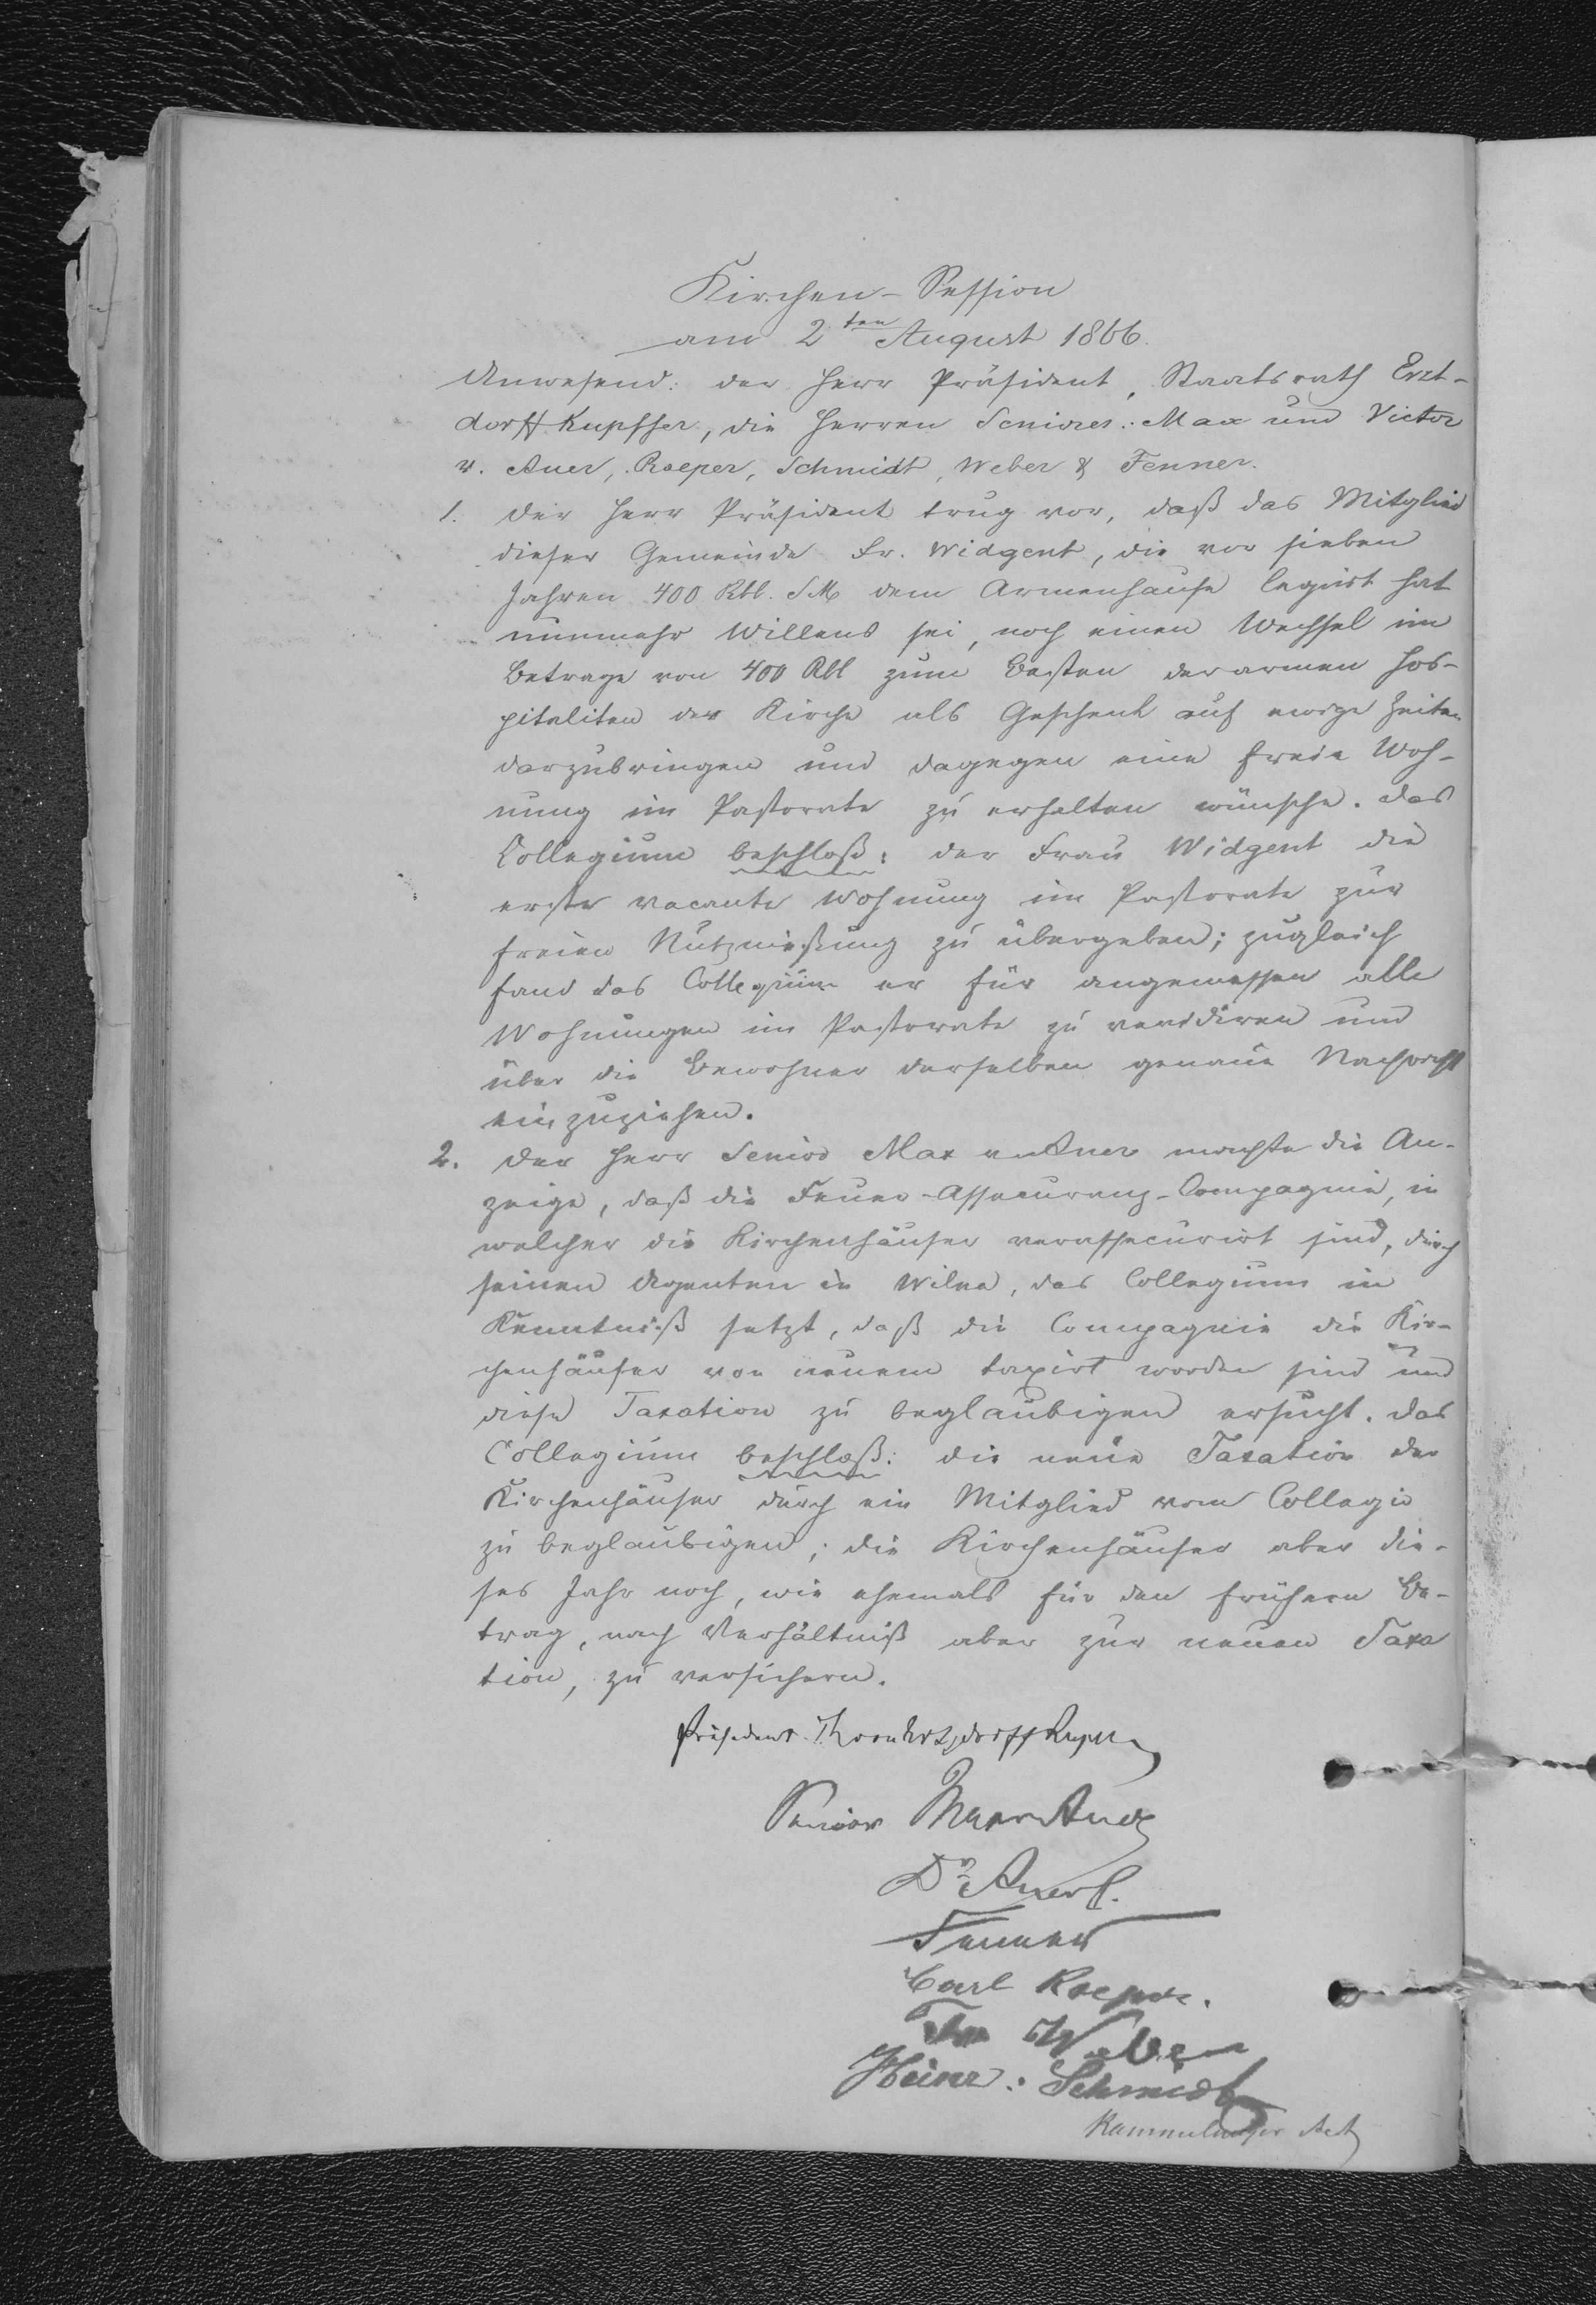 Kirchen-Session
am 2ten August 1866.
Anwesend: der Herr Präsident, Staatsrath Erzt-
dorff Kupffer, die Herren Seniores: Max und Victor
v. Auer, Roeper, Schmidt, Weber & Fenner.
1. Der Herr Präsident trug vor, daß das Mitglied
dieser Gemeinde Fr. Widgent, die vor sieben
Jahren 400 Rbl. SM dem Armenhause legirt hat
nunmehr Willens sei, noch einen Wechsel im
Betrage von 400 Rbl zum Besten der armen Hos-
pitaliten der Kirche als Geschenk auf ewige Zeiten
darzubringen und dagegen eine freie Woh-
nung im Pastorate zu erhalten wünsche. Das
Collegium beschloß: der Frau Widgent die
erste vacante Wohnung im Pastorate zur
freien Nutznießung zu übergeben; zugleich
fand das Collegium er für angemessen alle
Wohnungen im Pastorate zu revidiren und
über die Bewohner derselben genaue Nachricht
einzuziehen.
2. Der Herr Senior Max v. Auer machte die An-
zeige, daß die Feuer-Assecuranz-Compagnie, in
welcher die Kirchenhäuser verassecurirt sind, durch
seinen Agenten in Wilna, das Collegium in
Kenntniß setzt, daß die Compagnie die Kir-
chenhäuser von neuem taxirt worden sind und
diese Taxation zu beglaubigen ersucht. Das
Collegium beschloß: die neue Taxation der
Kirchenhäuser durch ein Mitglied vom Collegio
zu beglaubigen; die Kirchenhäuser aber die-
ses Jahr noch, wie ehemals für den frühern Be-
trag, nach Verhältniß aber zur neuen Taxa
tion, zu versichern.
Präsident
Senior Max v Auer
Dr Auer
Fenner
Carl Roeper.
Weber
Heinr: Schmidt